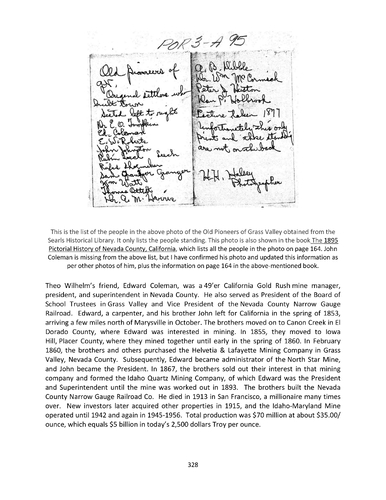 POR 3-A 95
Old Pioneers of
G.V.
Original settlers who
built town
Seated left to right
Ed. Coleman
E. W. Roberts
John Johnston
Wm Watt
A. B. Dibble
Dr. Wm McCormick
Dan P. Holbrook
Picture taken 1897
Unfortunately this only
print and those standing
are not on the back
H.H. Haley
Photographer
This is the list of the people in the above photo of the Old Pioneers of Grass Valley obtained from the
Searls Historical Library. It only lists the people standing. This photo is also shown in the book The 1895
Pictorial History of Nevada County, California, which lists all the people in the photo on page 164. John
Coleman is missing from the above list, but I have confirmed his photo and updated this information as
per other photos of him, plus the information on page 164 in the above-mentioned book.
Theo Wilhelm's friend, Edward Coleman, was a 49'er California Gold Rush mine manager,
president, and superintendent in Nevada County. He also served as President of the Board of
School Trustees in Grass Valley and Vice President of the Nevada County Narrow Gauge
Railroad. Edward, a carpenter, and his brother John left for California in the spring of 1853,
arriving a few miles north of Marysville in October. The brothers moved on to Canon Creek in El
Dorado County, where Edward was interested in mining. In 1855, they moved to Iowa
Hill, Placer County, where they mined together until early in the spring of 1860. In February
1860, the brothers and others purchased the Helvetia & Lafayette Mining Company in Grass
Valley, Nevada County. Subsequently, Edward became administrator of the North Star Mine,
and John became the President. In 1867, the brothers sold out their interest in that mining
company and formed the Idaho Quartz Mining Company, of which Edward was the President
and Superintendent until the mine was worked out in 1893. The brothers built the Nevada
County Narrow Gauge Railroad Co. He died in 1913 in San Francisco, a millionaire many times
over. New investors later acquired other properties in 1915, and the Idaho-Maryland Mine
operated until 1942 and again in 1945-1956. Total production was $70 million at about $35.00/
ounce, which equals $5 billion in today's 2,500 dollars Troy per ounce.
328